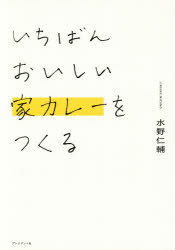 いちばん
おいしい
家カレーを
つくる
水野仁輔
プレジデント社